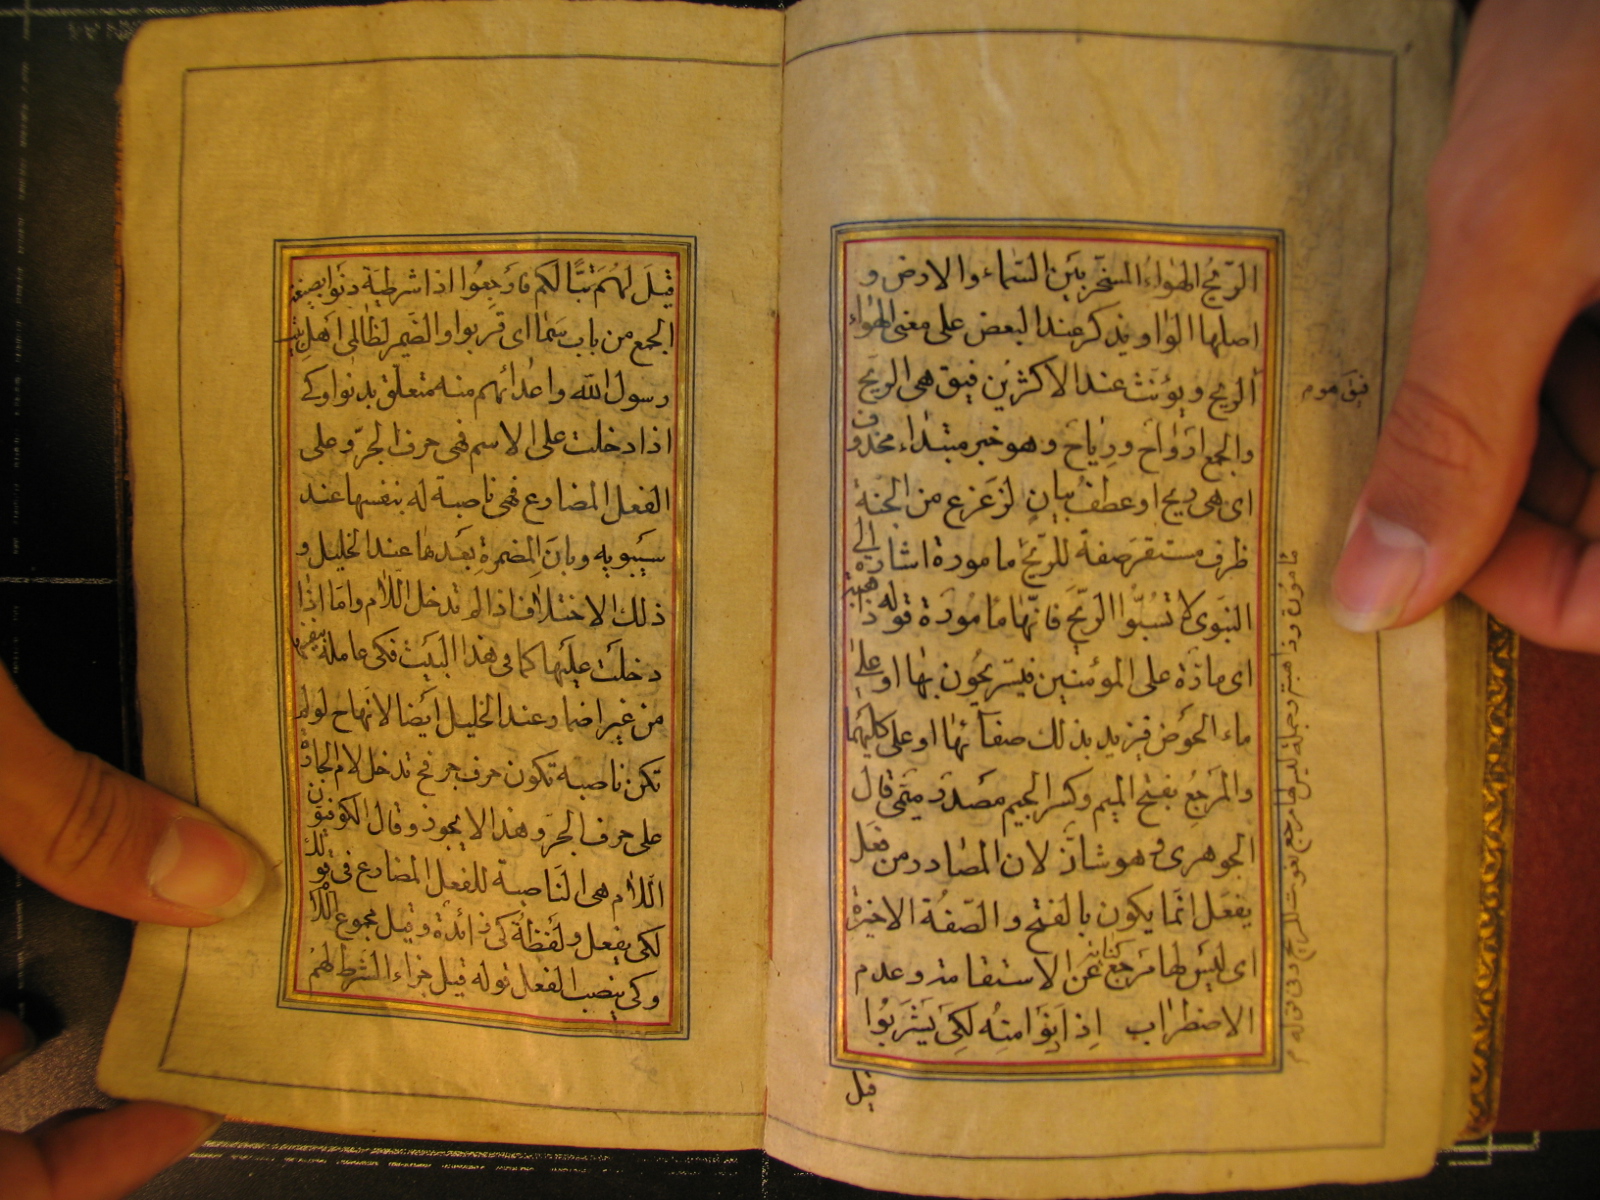 الرّيح الهواء المسخّر بين السّماء والارض و
اصلها الواو ويذكر عند البعض على معنى الهواء
الريح ويؤنث عند الاكثرين فيق هى الريح
والجمع ارواح ورياح وهو خبر مبتداء محذوف
اى هى ريح او عطف بيان لزعزع من الجنة
ظرف مستقر صفة للرّيح مامورة اشارة الى
النبوى لا تسبّوا الرّيح فانّها مامورة قوله ذاهبة
اى مارّة على المؤمنين فيستريحون بها او على
ماء الحوض فيزيد بذلك صفائها او على كليهما
والمرجع بفتح الميم وكسر الجيم مصدر ميمى قال
الجوهرى وهو شاذّ لان المصادر من فعل
يفعل انّما يكون بالفتح والصّفة الاخيرة
اى ليس لها مرجع كناية عن الاستقامة وعدم
الاضطراب اذا دنوا منه لكى يشربوا
قيل
فيق موم
قيل لهم تبّا لكم فارجعوا اذا شرطية دنوا بصيغة
الجمع من باب سما اى قربوا والضّمير لظالمى اهل بيت
رسول الله واعدائهم منه متعلّق بدنوا وكى
اذا دخلت على الاسم فهى حرف الجرّ وعلى
الفعل المضارع فهى ناصبة له بنفسها عند
سيبويه وبان المضمرة بعدها عند الخليل و
ذلك الاختلاف اذا لم تدخل اللام وامّا اذا
دخلت عليها كما فى هذا البيت فكى عاملة بنفسها
من غير اضمار وعند الخليل ايضا لانهاح لو لم
تكن ناصبه تكون حرف جر فح تدخل لام الجارّة
على حرف الجرّ وهذا لا يجوز وقال الكوفيون
اللام هى النّاصبة للفعل المضارع فى قولك
لكى يفعل ولفظة كى زائدة وقيل مجموع اللام
وكى ينصب الفعل قوله قيل جزاء الشرط لهم